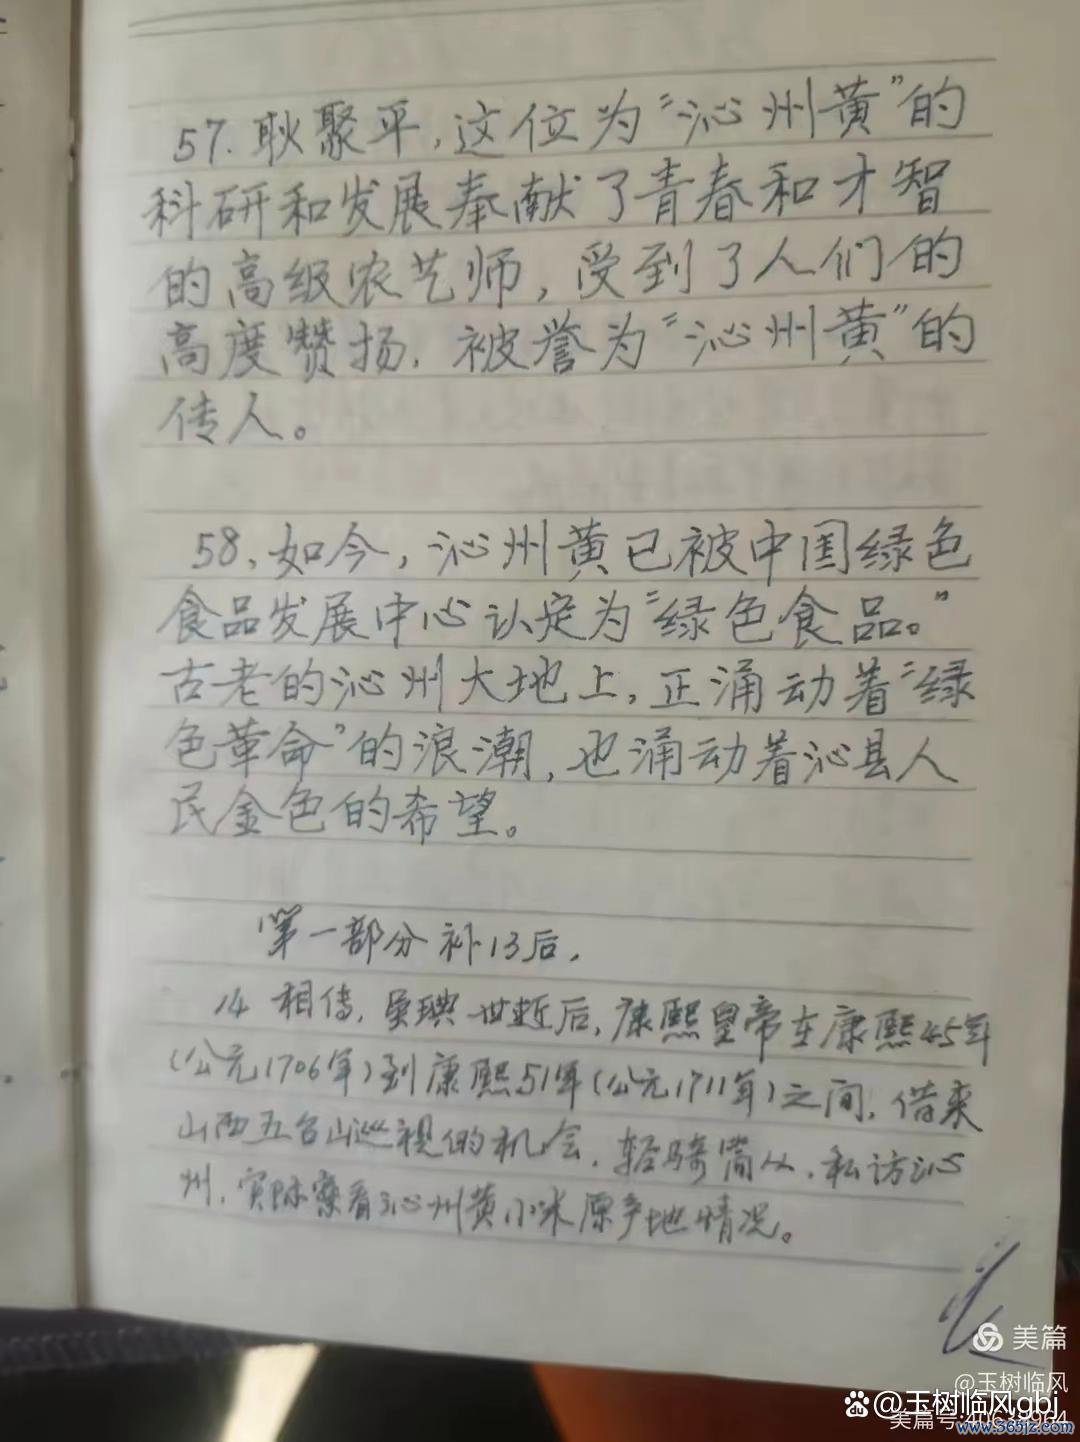 57.耿聚平,这位为“沁州黄”的
科研和发展奉献了青春和才智
的高级农艺师,受到了人们的
高度赞扬,被誉为“沁州黄”的
传人。
58、如今,沁州黄已被中国绿色
食品发展中心认定为“绿色食品。”
古老的沁州大地上,正涌动着“绿
色革命”的浪潮,也涌动着沁县人
民金色的希望。
第一部分补13后,
14 相传,吴琠世逝后,康熙皇帝在康熙45年
(公元1706年)到康熙51年(公元1711年)之间,借来
山西五台山巡视的机会,轻骑简从,私访沁
州,实际察看沁州黄小米原产地情况。
美篇
@玉树临风
@玉树临风gbj
美篇号:
www.365jz.com